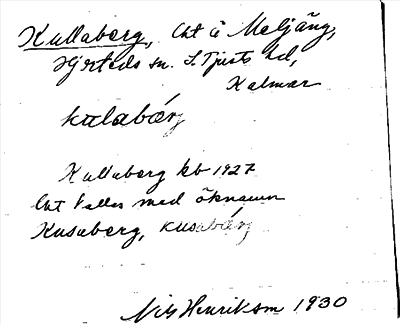 Kullaberg, Lht å Meljäng,
Hjorteds sn. S. Tjusts hd,
Kalmar
kulabärj
Kullaberg kb 1927
Lht kallas med öknamn
Kusaberg, kusabärj
Nils Henriksson 1930